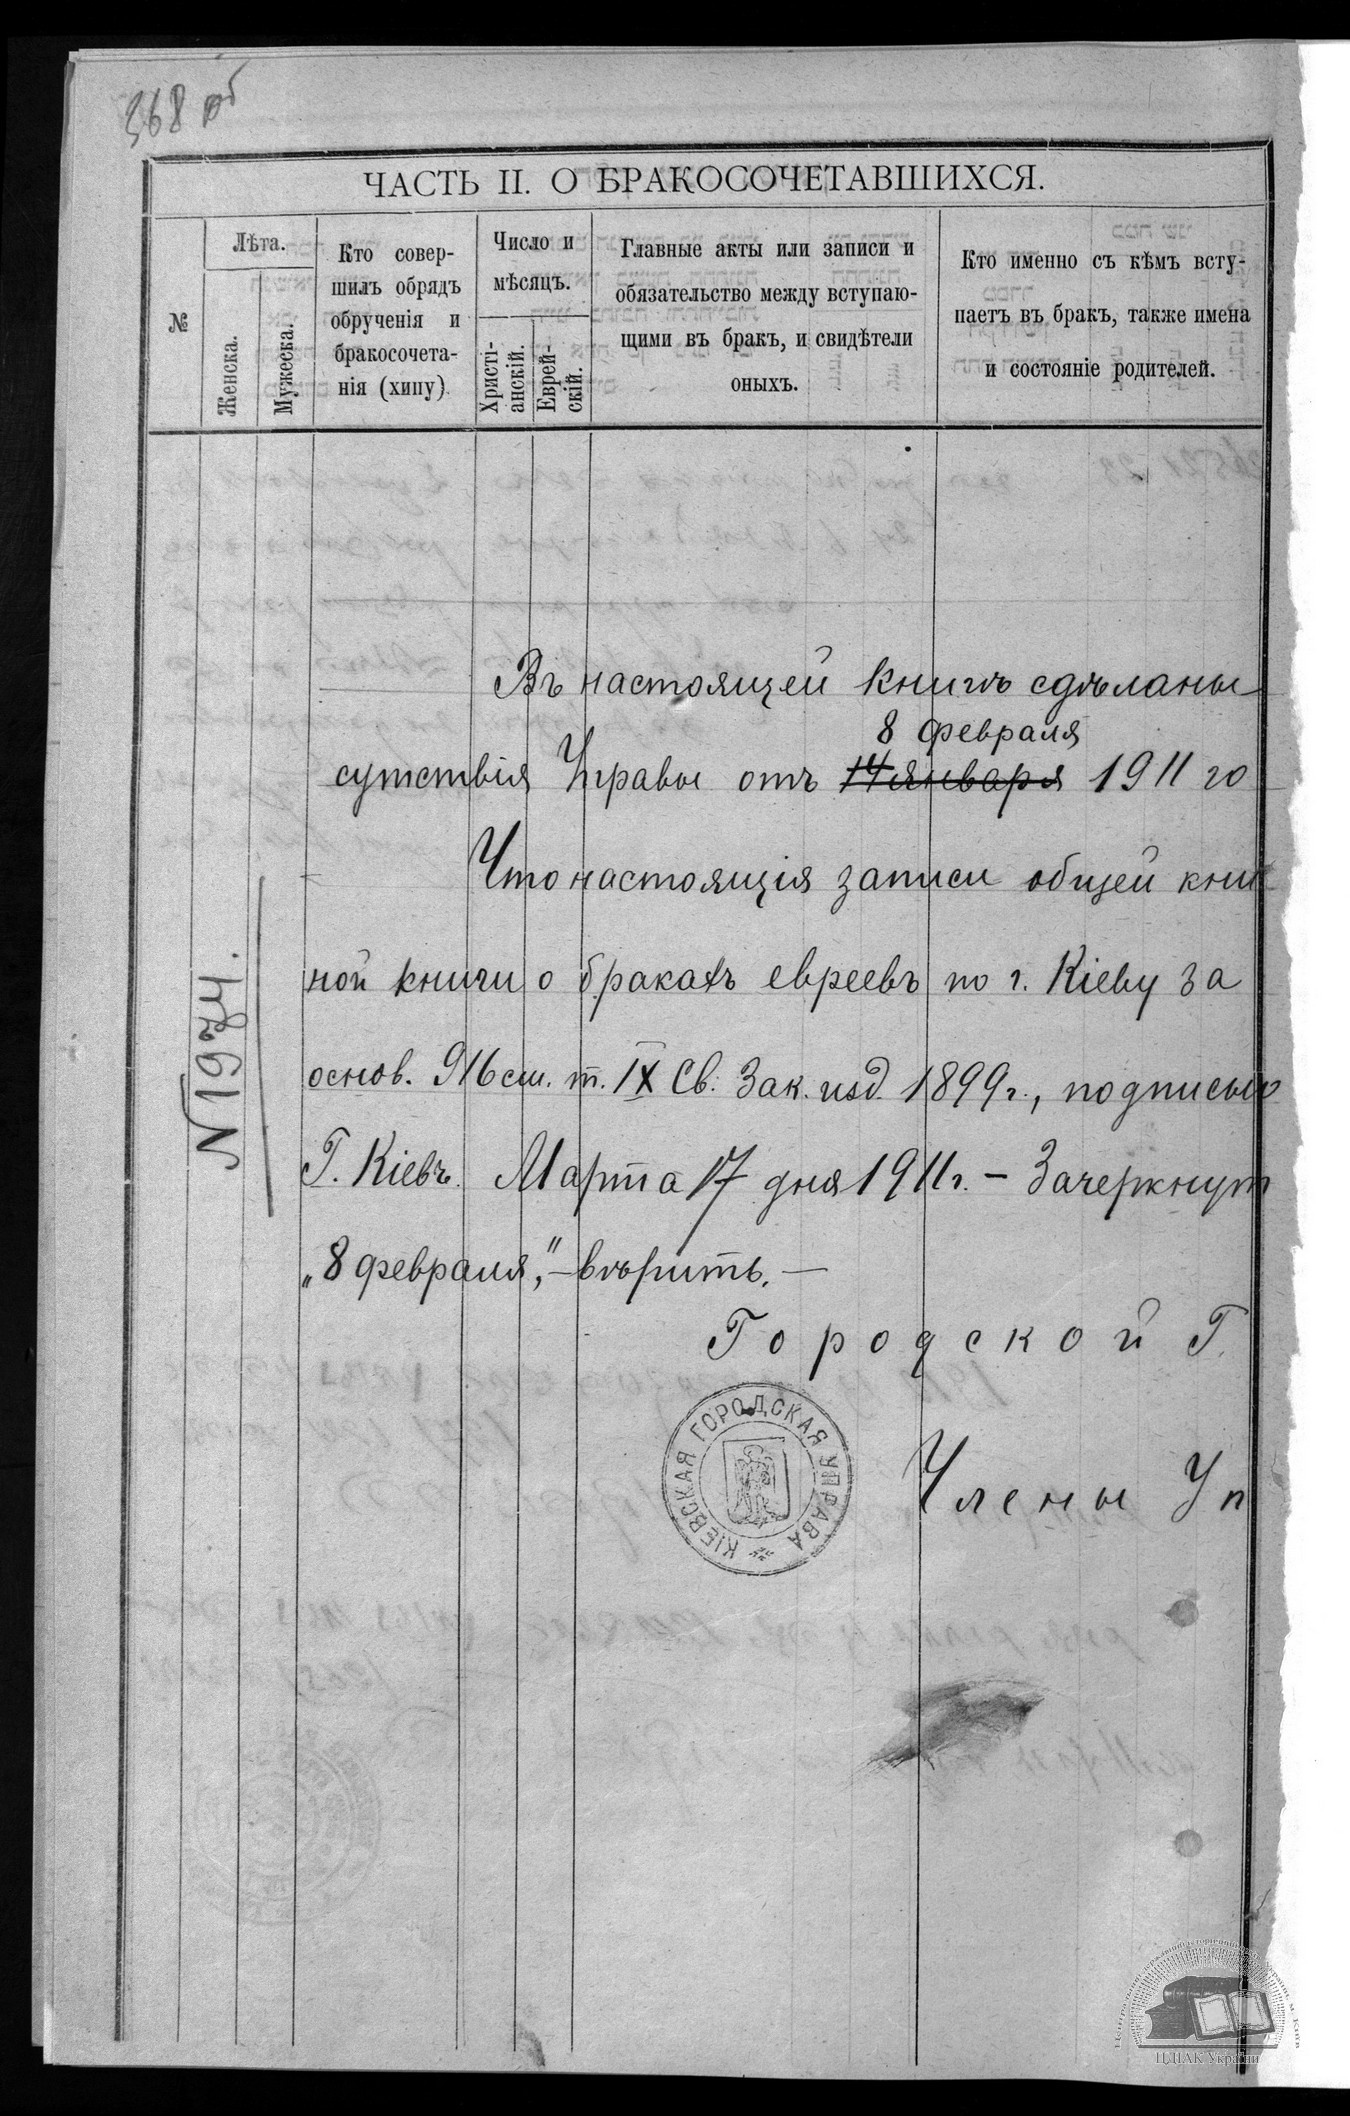 368 об
ЧАСТЬ II. О БРАКОСОЧЕТАВШИХСЯ.
№
Лѣта.
Женска.
Мужеска.
Кто совер-
шилъ обрядъ
обрученія и
бракосочета-
нія (хипу)
Число и
мѣсяцъ.
Христі-
анскій.
Еврей-
скій.
Главные акты или записи и
обязательство между вступаю-
щими въ бракъ, и свидѣтели
оныхъ.
Кто именно съ кѣмъ всту-
паетъ въ бракъ, также имена
и состояніе родителей.
Въ настоящей книгѣ сдѣланы
8 февраля
сутствія Управы отъ 14 января 1911 го
Что настоящія записи общей кни
ной книги о бракахъ евреевъ по г. Кіеву за
основ. 916 ст. т. IX Св. Зак. изд. 1899 г., подписью
Г. Кіевъ. Марта 17 дня 1911 г. – Зачеркнут
„8 февраля„" – вѣрить. –
Городской Г
Члены Уп
N 1974.
КІЕВСКАЯ ГОРОДСКАЯ УПРАВА
ЦДІАК України